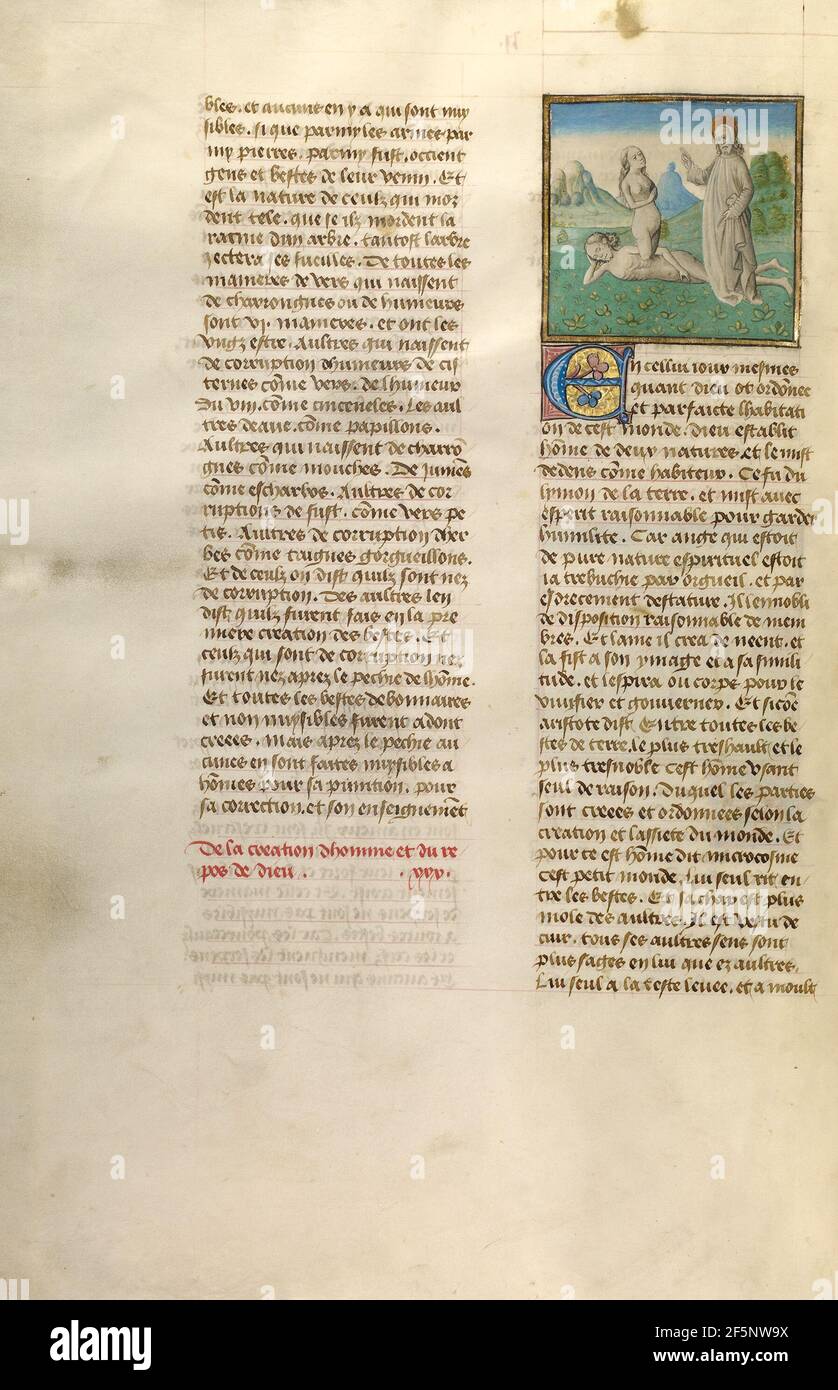 bles. et aucuns en y a qui sont nuy
sibles. si que parmy les armes par
my pierres. parmy fust. occient
gens et bestes de leur venin. Et
est la nature de ceulz qui mor
dent tele. que se ilz mordent la
racine dun arbre. tantost larbre
iectera ses fueilles. De toutes les
manieres de vers qui naissent
de charrongnes ou de humeurs
sont vi. manieres. et ont les
ungz estre. Aultres qui naissent
de corruption dhumeurs de cis
ternes cōme vers. de lhumeur
du vin. cōme cinceneles. Les aul
tres deaue. cōme papillons.
Aultres qui naissent de charrō
gnes cōme mouches. De jumēs
cōme escharbos. Aultres de cor
ruptions de fust. cōme vers pe
tis. Aultres de corruption dher
bes cōme taignes gorgueillons.
Et de ceulz on dist quilz sont nez
de corruption. Des aultres len
dist quilz furent fais en la pre
miere creation des bestes. Et
ceulz qui sont de corruption nez
furent nez aprez le pechie de lhōme.
Et toutes les bestes debonnaires
et non nuysibles furent adont
creees. Mais aprez le pechie au
cunes en sont faites nuysibles a
hōmes pour sa punition. pour
sa correction. et son enseignement
De la creation dhomme et du re
pos de dieu. .xxx.
En cellui iour mesmes
quant dieu ot ordonee
et parfaicte lhabitati
on de cest monde. dieu establit
hōme de deux natures. et le mist
dedens cōme habiteur. Ce fu du
lymon de la terre. et mist avec
esperit raisonnable pour garder
humilite. Car ange qui estoit
de pure nature espirituel estoit
ia trebuchie par orgueil. et par
esdrecement destature. Il lennobli
de disposition raisonnable de mem
bres. Et lame il crea de neent. et
la fist a son ymage et a sa simili
tude. et lespira ou corps pour le
vivifier et gouverner. Et sicōe
aristote dist. Entre toutes les be
stes de terre. le plus treshault et le
plus tresnoble cest hōme usant
seul de raison. Duquel les parties
sont creees et ordonnees selon la
creation et lassiete du monde. Et
pour ce est hōme dit microcosme
cest petit monde. Lui seul rit en
tre les bestes. Et sa char est plus
mole des aultres. Il est vestu de
cuir. tous ses aultres sens sont
plus sages en lui que ez aultres.
Lui seul a la teste levee. et a moult
alamy
Image ID: 2F5NW9X
www.alamy.com